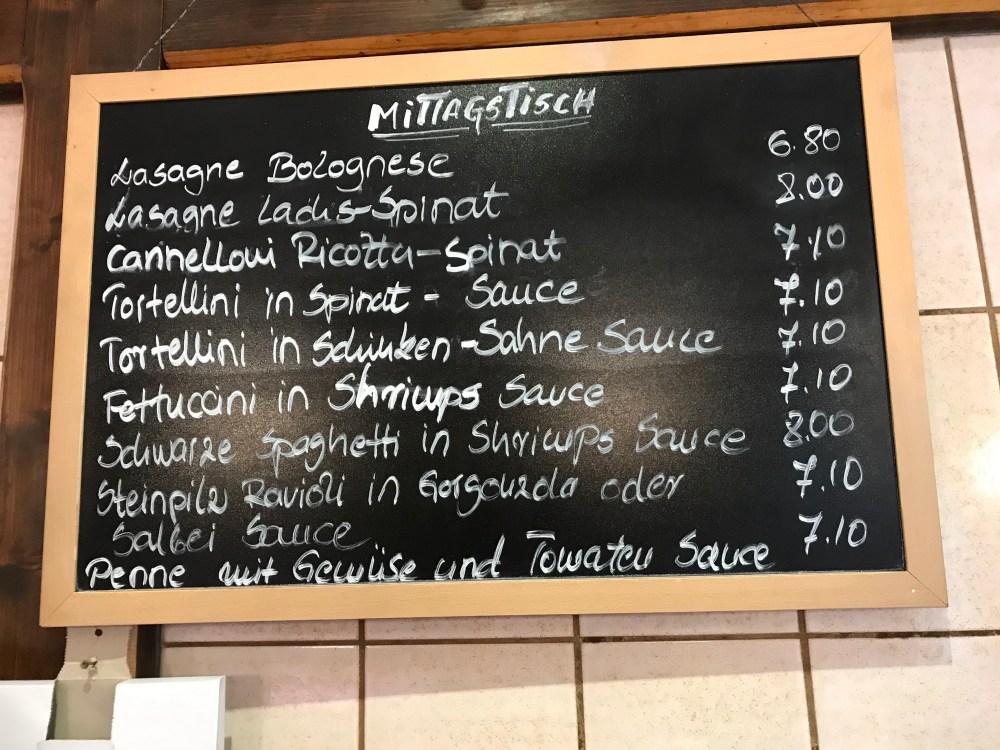 MITTAGSTISCH
Lasagne Bolognese 6.80
Lasagne Lachs-Spinat 8.00
Cannelloni Ricotta-Spinat 7.10
Tortellini in Spinat - Sauce 7.10
Tortellini in Schinken-Sahne Sauce 7.10
Fettuccini in Shrimps Sauce 7.10
Schwarze Spaghetti in Shrimps Sauce 8.00
Steinpilz Ravioli in Gorgonzola oder 7.10
Salbei Sauce
Penne mit Gemüse und Tomaten Sauce 7.10